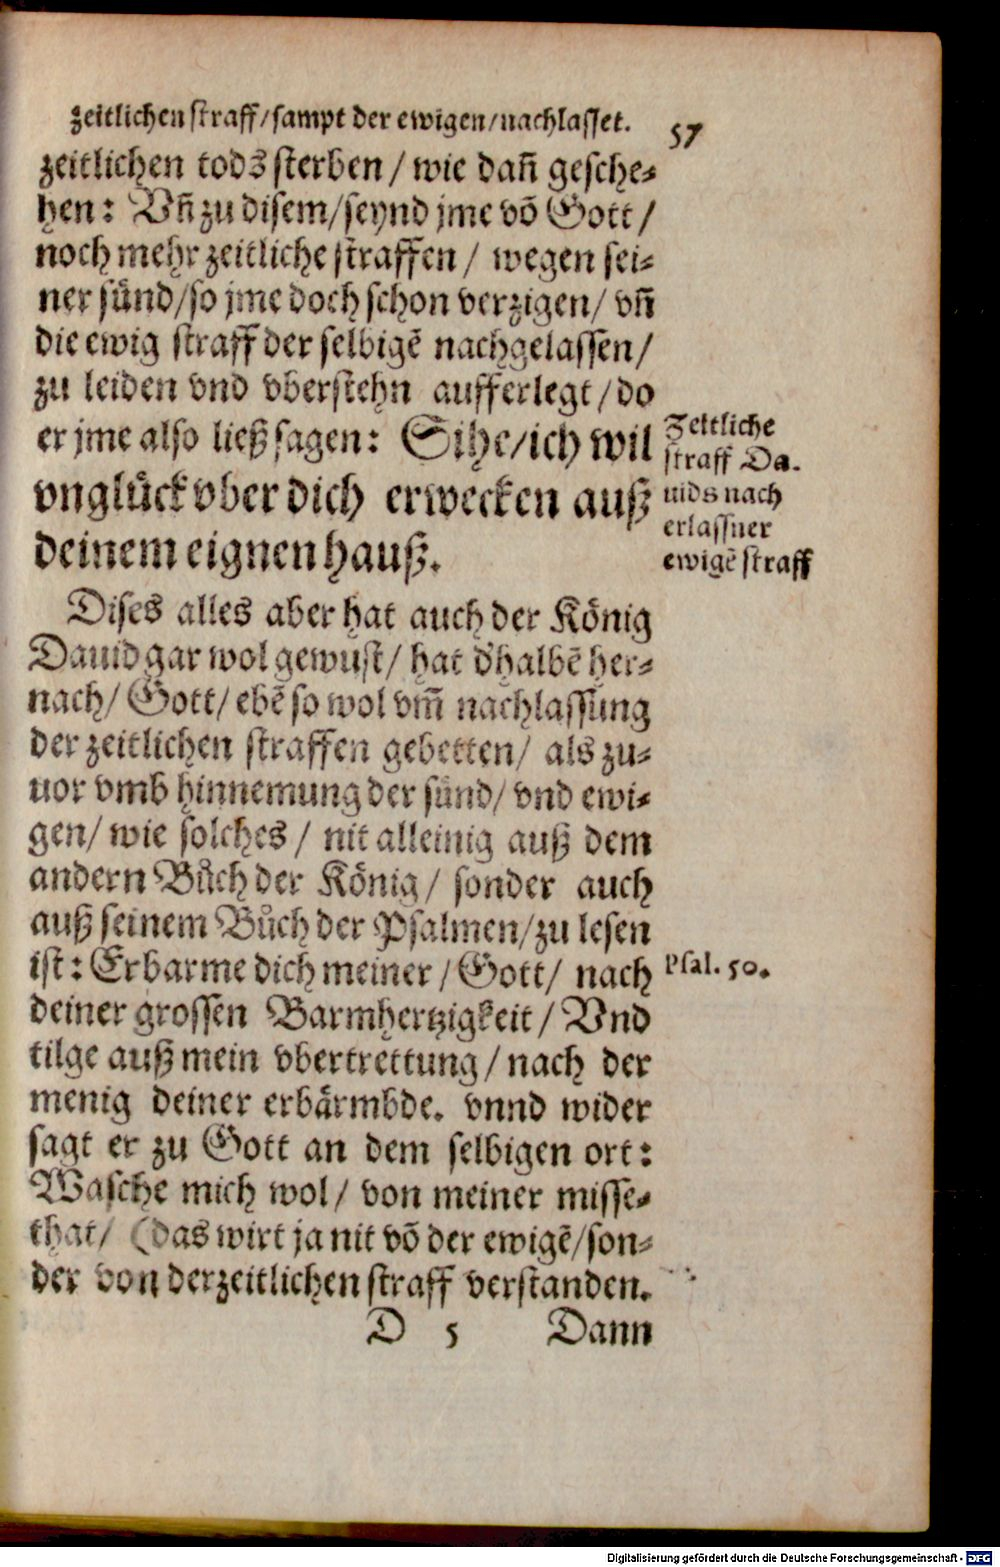 zeitlichen straff/sampt der ewigen/nachlasset.
57
zeitlichen tods sterben / wie dañ gesche-
hen: Vñ zu disem/seynd jme võ Gott /
noch mehr zeitliche straffen / wegen sei-
ner sünd/so jme doch schon verzigen/ vñ
die ewig straff der selbigẽ nachgelassen/
zu leiden vnd vberstehn aufferlegt / do
er jme also ließ sagen: Sihe/ich wil
vnglück vber dich erwecken auß
deinem eignen hauß.
Zeitliche
straff Da-
uids nach
erlassner
ewigẽ straff
Dises alles aber hat auch der König
Dauid gar wol gewust/ hat d'halbẽ her-
nach/ Gott/ ebẽ so wol vm̃ nachlassung
der zeitlichen straffen gebetten/ als zu-
uor vmb hinnemung der sünd/ vnd ewi-
gen/ wie solches / nit alleinig auß dem
andern Bůch der König/ sonder auch
auß seinem Bůch der Psalmen/zu lesen
ist: Erbarme dich meiner / Gott/ nach
Psal. 50.
deiner grossen Barmhertzigkeit/ Vnd
tilge auß mein vbertrettung / nach der
menig deiner erbärmbde. vnnd wider
sagt er zu Gott an dem selbigen ort:
Wasche mich wol/ von meiner misse-
that/ (das wirt ja nit võ der ewigẽ/son-
der von der zeitlichen straff verstanden.
D 5 Dann
Digitalisierung gefördert durch die Deutsche Forschungsgemeinschaft - DFG